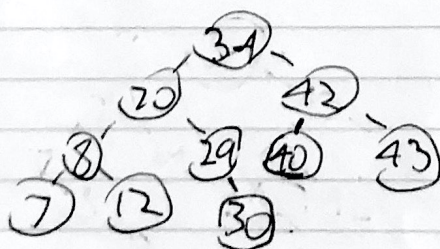 34
20 42
8 29 40 43
7 12 30